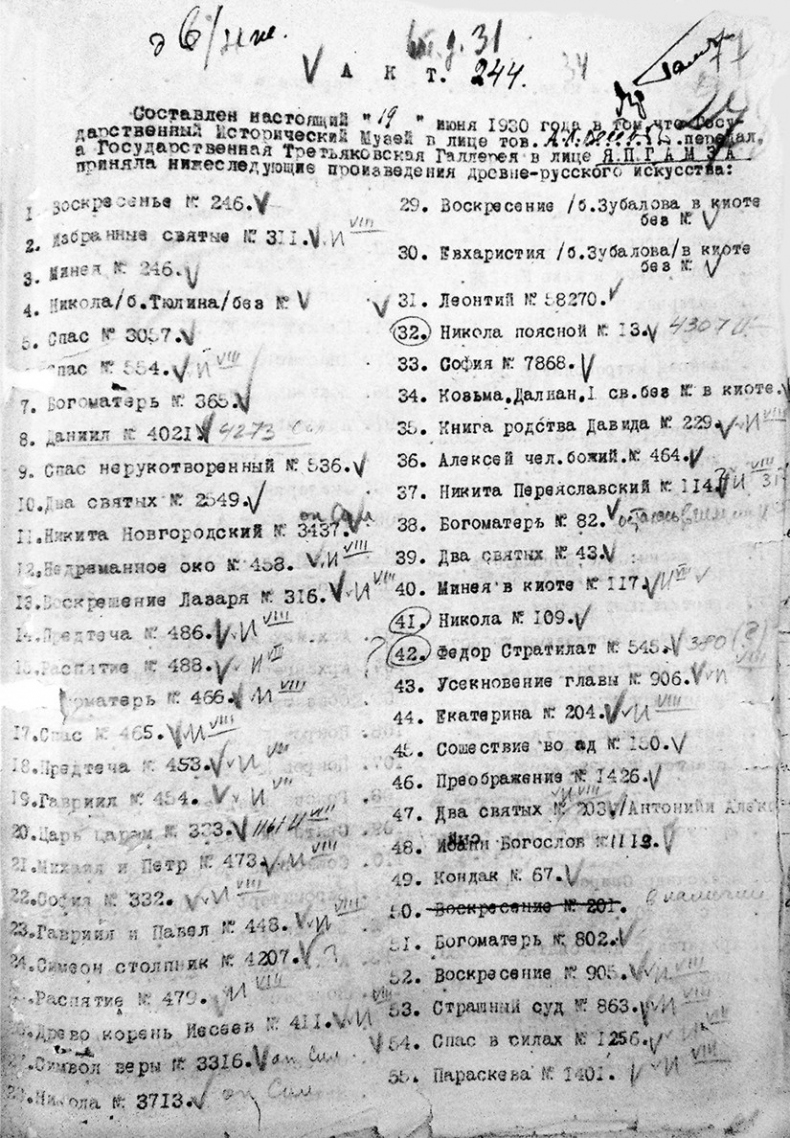 А К Т. 244.
Составлен настоящий "19" июня 1930 года в том, что Госу-
дарственный Исторический Музей в лице тов. передал,
а Государственная Третьяковская Галлерея в лице Я.П.ГАМЗА
приняла нижеследующие произведения древне-русского искусства:
1. Воскресенье № 246. V
2. Избранные святые № 311. V И VIII
3. Минея № 246. V
4. Никола/б.Тюлина/без № V
5. Спас № 3057. V
Спас № 554. V И VIII
7. Богоматерь № 365. V
8. Даниил № 4021 V 4273
9. Спас нерукотворенный № 536. V
10. Два святых № 2549. V
11. Никита Новгородский № 3437. V
12. Недреманное око № 458. V И VIII
13. Воскрешение Лазаря № 316. V И VIII
14. Предтеча № 486. V И VIII
15. Распятие № 488. V И VII
оматерь № 466. V И VIII
17. Спас № 465. V И VIII
18. Предтеча № 453. V И VIII
19. Гавриил № 454. V И VIII
20. Царь царям № 333. V
21. Михаил и Петр № 473. V И VIII
22. София № 332. V И VIII
23. Гавриил и Павел № 448. V И VIII
24. Симеон столпник № 4207. V ?
Распятие № 479. И VIII
26. Древо корень Иесеев № 411. V И VIII
27. Символ веры № 3316. V
28. Никола № 3713. V
29. Воскресение /б.Зубалова в киоте
без № V
30. Евхаристия /б.Зубалова/в киоте
без № V
V 31. Леонтий № 58270. V
32. Никола поясной № 13. V 4307
33. София № 7868. V
34. Козьма, Далиан, I св.без № в киоте. V
35. Книга родства Давида № 229. V И VIII
36. Алексей чел.божий.№ 464. V
37. Никита Переяславский № 114. ? И VIII 31
38. Богоматерь № 82. V
39. Два святых № 43. V
40. Минея в киоте № 117. V И VII V
41. Никола № 109. V
? 42. Федор Стратилат № 545. V 380 (?)
43. Усекновение главы № 906. V И VIII
44. Екатерина № 204. V И VIII
45. Сошествие во ад № 150. V
46. Преображение № 1426. V
47. Два святых № 203 V/Антонийи Алекс
48. Иоанн Богослов № 1113. V
49. Кондак № 67. V
50. Воскресение № 201. В наличии
51. Богоматерь № 802. V
52. Воскресение № 905. V И VIII
53. Страшный суд № 863. V И VIII
V 54. Спас в силах № 1256. V И VIII
55. Параскева № 1401. V И VIII